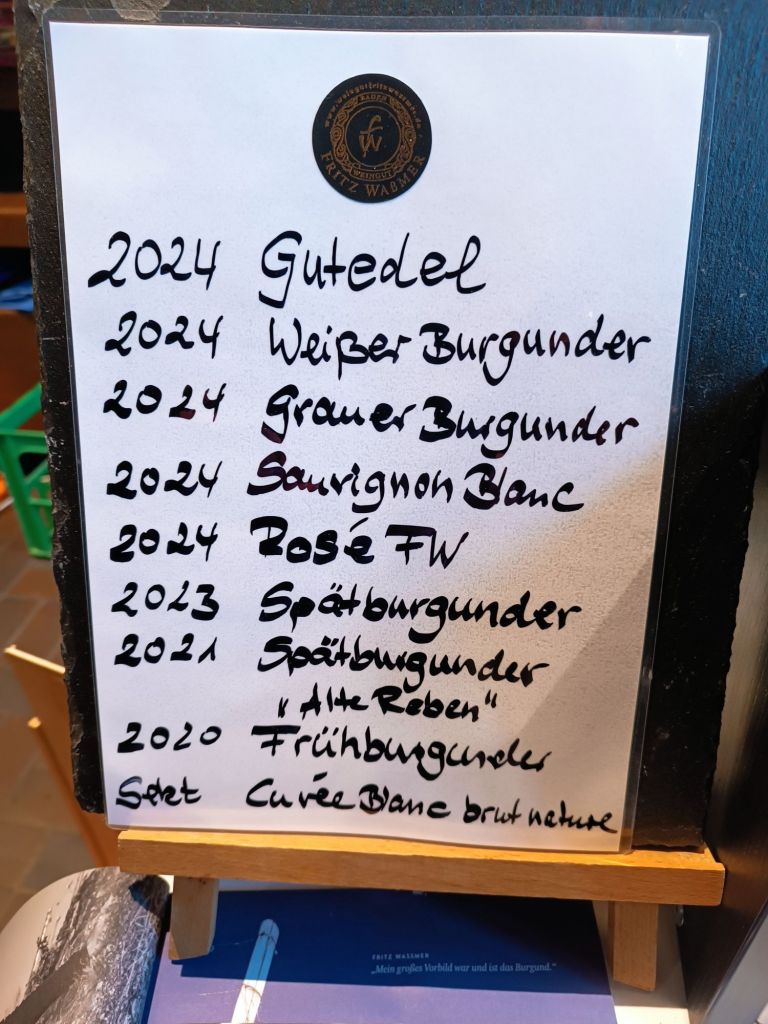 www.weingutfritzwassmer.de
BADEN
FW
WEINGUT
FRITZ WAßMER
2024 Gutedel
2024 Weißer Burgunder
2024 Grauer Burgunder
2024 Sauvignon Blanc
2024 Rosé FW
2023 Spätburgunder
2021 Spätburgunder
„Alte Reben"
2020 Frühburgunder
Sekt Cuvée Blanc brut nature
FRITZ WASSMER
„Mein großes Vorbild war und ist das Burgund.“